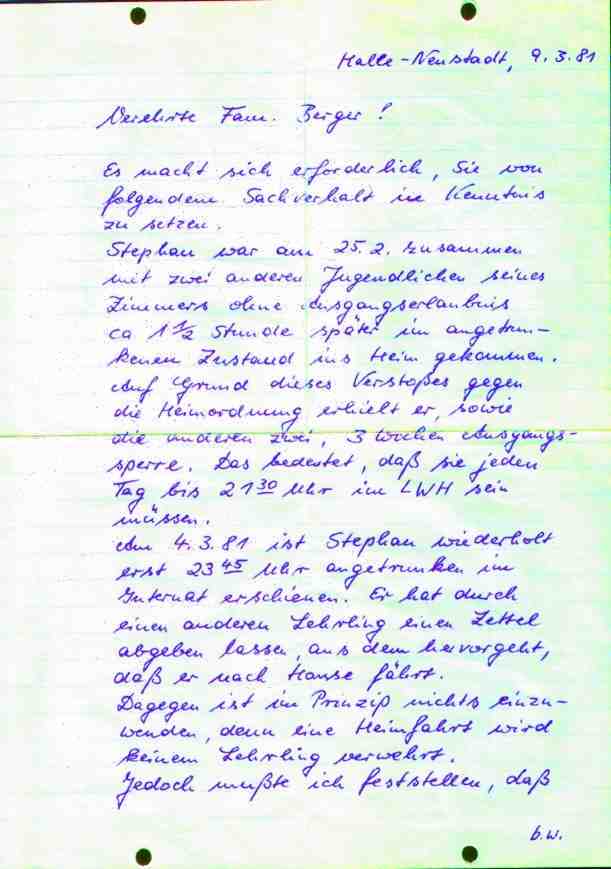 Halle-Neustadt, 9.3.81
Verehrte Fam. Berger!
Es macht sich erforderlich, Sie von
folgendem Sachverhalt in Kenntnis
zu setzen.
Stephan war am 25.2. zusammen
mit zwei anderen Jugendlichen seines
Zimmers ohne Ausgangserlaubnis
ca 1 1/2 Stunde später im angetrun-
kenen Zustand ins Heim gekommen.
Auf Grund dieses Verstoßes gegen
die Heimordnung erhielt er, sowie
die anderen zwei, 3 Wochen Ausgangs-
sperre. Das bedeutet, daß sie jeden
Tag bis 21 30 Uhr im LWH sein
müssen.
Am 4.3.81 ist Stephan wiederholt
erst 23 45 Uhr angetrunken im
Internat erschienen. Er hat durch
einen anderen Lehrling einen Zettel
abgeben lassen, aus dem hervorgeht,
daß er nach Hause fährt.
Dagegen ist im Prinzip nichts einzu-
wenden, denn eine Heimfahrt wird
keinem Lehrling verwehrt.
Jedoch mußte ich feststellen, daß
b.w.